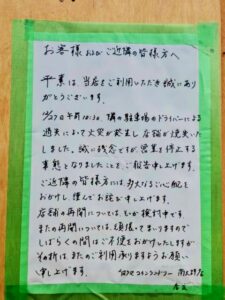 お客様および近隣の皆様方へ
平素は、当店をご利用いただき誠にあり
がとうございます。
午前 隣の駐車場のドライバーによる
過失において火災が発生し店舗が焼失いた
しました。誠に残念ですが、営業を停止する
事態となりましたことをご報告申し上げます。
ご近隣の皆様方には、多大なるご心配を
おかけし、謹んでお詫び申し上げます。
店舗の再開についてはしいか検討中です。
またの再開については、頑張ってまいりますので
しばらくの間はご不便をおかけしますが
その折は、またのご利用承りますようお願い
申し上げます。
コインランドリー
店主